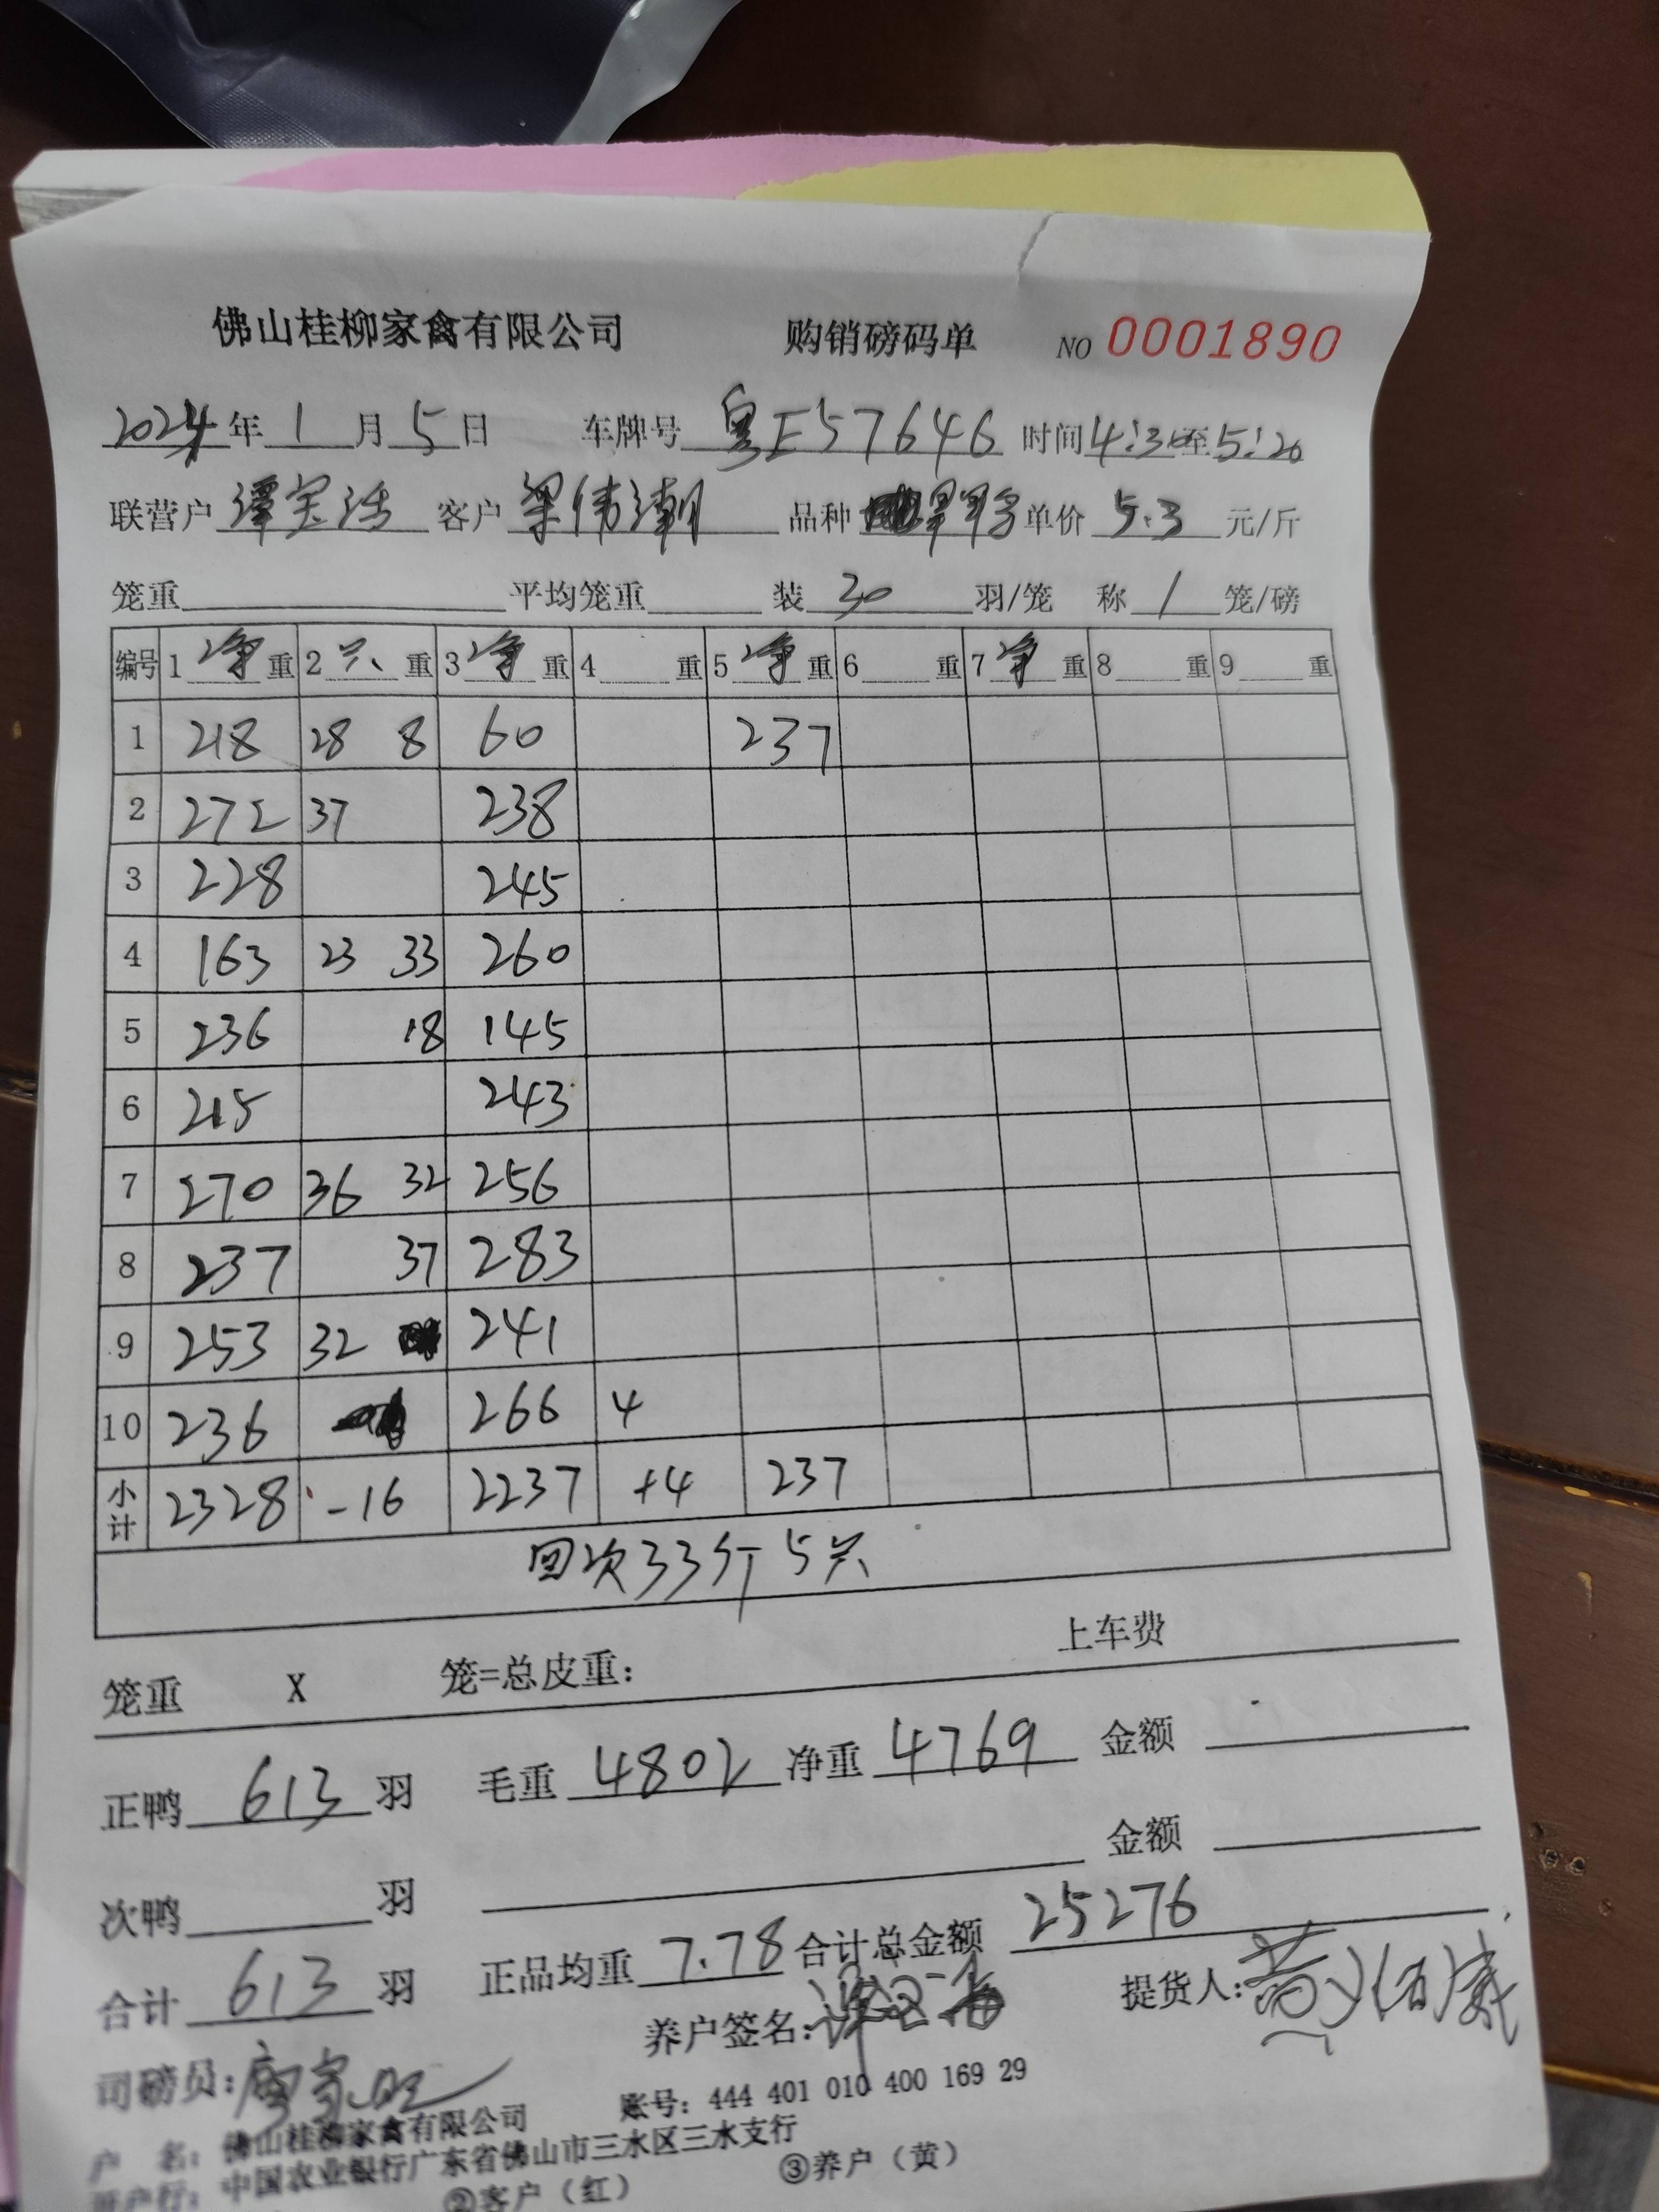 佛山桂柳家禽有限公司 购销磅码单 NO 0001890
2024年1月5日 车牌号 粤E57646 时间4:30至5:20
联营户 谭宝活 客户 梁伟潮 品种 单价 5.3 元/斤
笼重 平均笼重 装 30 羽/笼 称 1 笼/磅
编号 1 净 重 2 只 重 3 净 重 4 重 5 净 重 6 重 7 净 重 8 重 9 重
1 218 28 8 60 237
2 272 37 238
3 228 245
4 163 23 33 260
5 236 18 145
6 215 243
7 270 36 32 256
8 237 37 283
9 253 32 241
10 236 266 4
小计 2328 -16 2237 +4 237
回次33斤5只
上车费
笼重 X 笼=总皮重:
正鸭 613 羽 毛重 4802 净重 4769 金额
次鸭 羽 金额
合计 613 羽 正品均重 7.78 合计总金额 25276
养户签名: 提货人:
司磅员:
户 名: 佛山桂柳家禽有限公司 账号: 444 401 010 400 169 29
开户行: 中国农业银行广东省佛山市三水区三水支行
②客户(红) ③养户(黄)